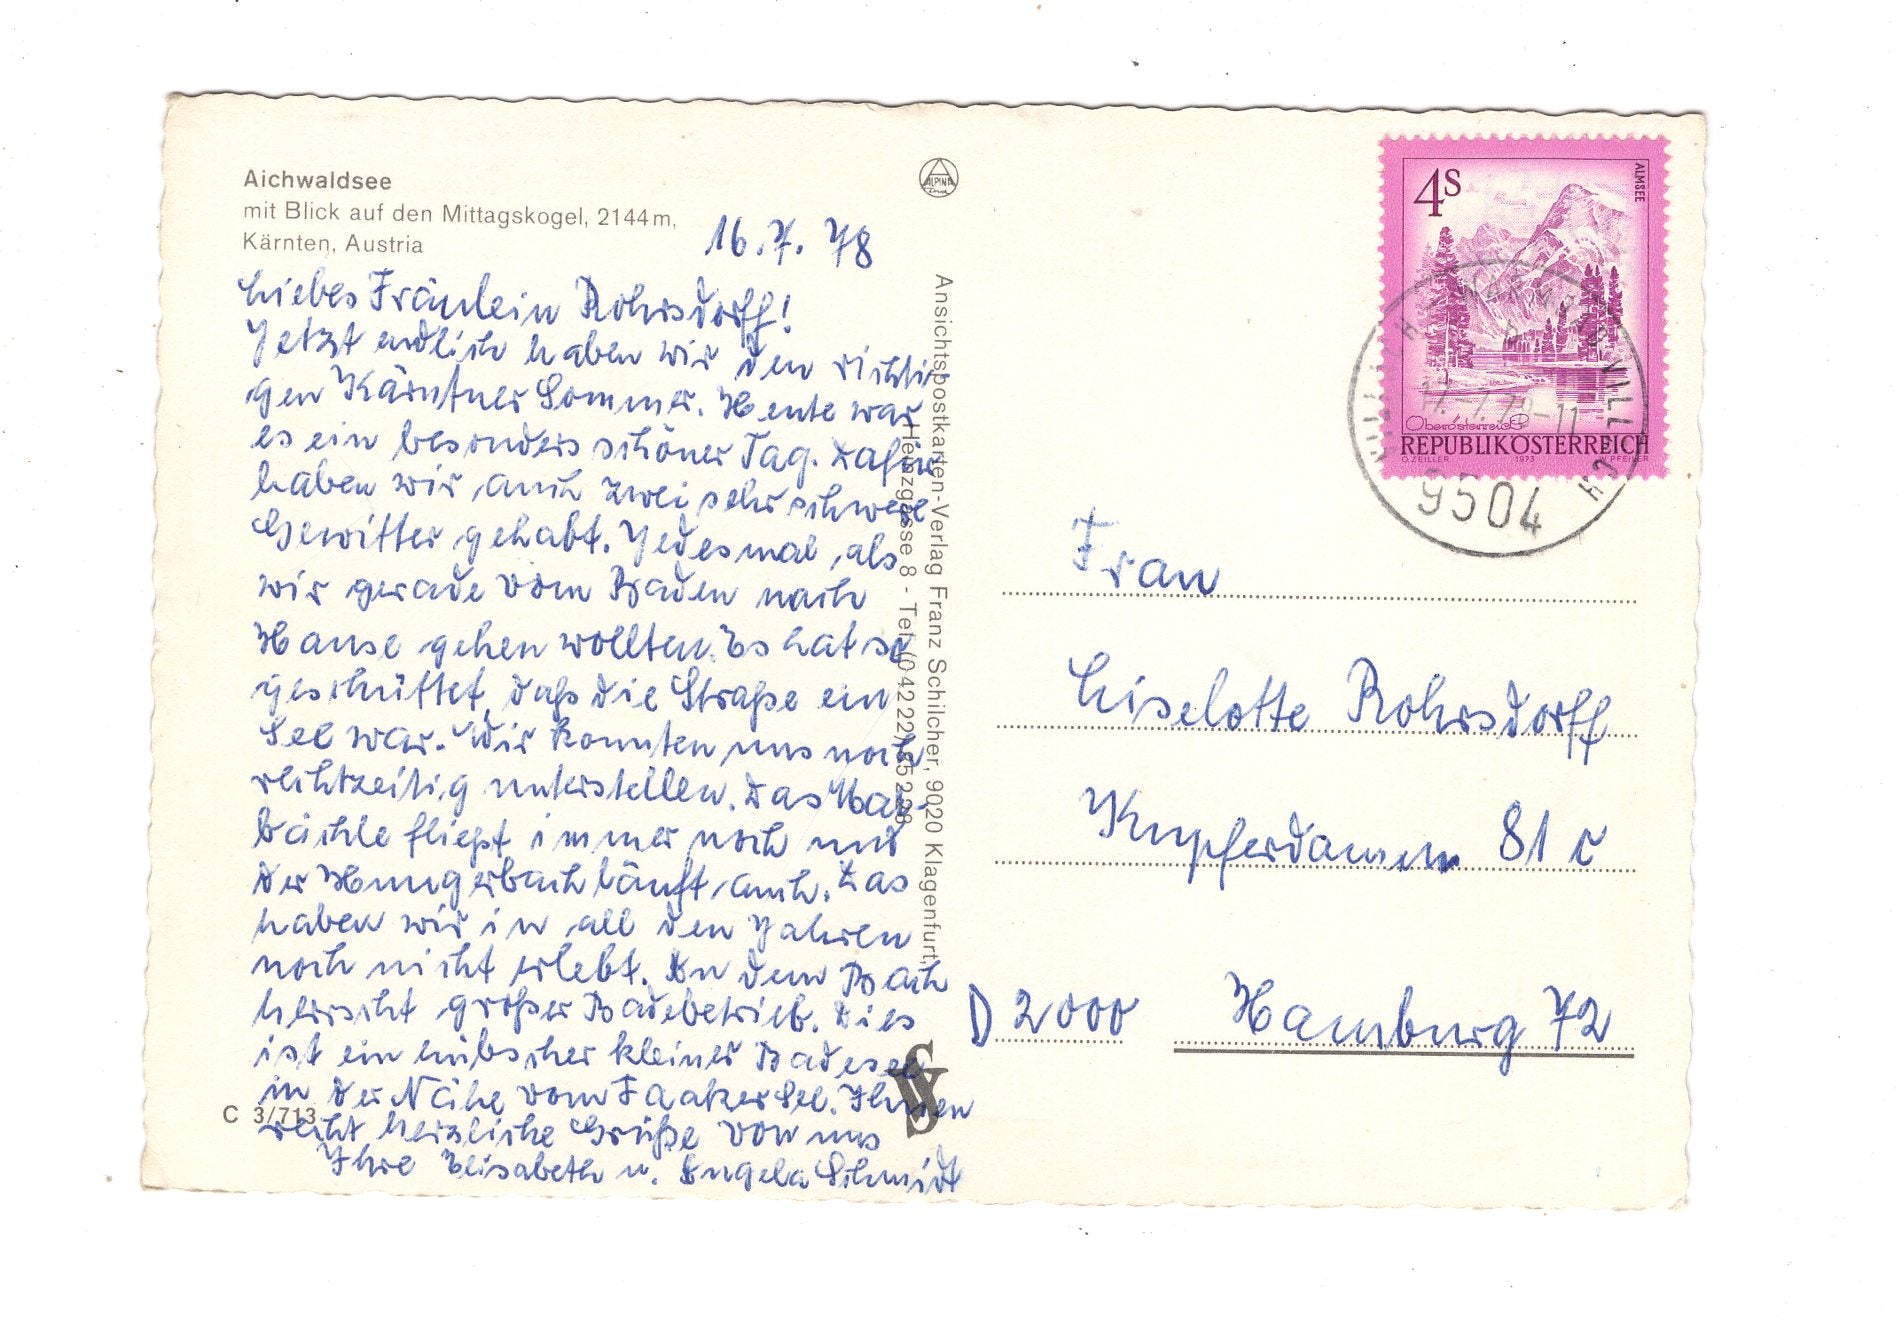 Aichwaldsee
mit Blick auf den Mittagskogel, 2144m,
Kärnten, Austria
16.7.78
Liebes Fräulein Rohrsdorff!
Jetzt endlich haben wir den richti-
gen Kärntner Sommer. Heute war
es ein besonders schöner Tag. Dafür
haben wir auch zwei sehr schwere
Gewitter gehabt. Jedesmal, als
wir gerade vom Baden nach
Hause gehen wollten. Es hat so
geschüttet, daß die Straße ein
See war. Wir konnten uns noch
rechtzeitig unterstellen. Das
bächle fließt immer noch und
der Hungerbach läuft auch. Das
haben wir in all den Jahren
noch nicht erlebt. An dem Bach
herrscht großer Badebetrieb. Dies
ist ein hübscher kleiner Badesee
in der Nähe vom Faaker See. Ihnen
recht herzliche Grüße von uns
Ihre Elisabeth u. Angela Schmidt
C 3/713
ALPINA
Ansichtspostkarten-Verlag Franz Schilcher, 9020 Klagenfurt,
Heinzgasse 8 - Tel. (04222)
4S
ALMSEE
Oberösterreich
REPUBLIK ÖSTERREICH
O. ZEILLER 1973 W. PFEILER
WARMBAD VILLACH
17.-7.78-11
9504
Frau
Liselotte Rohrsdorff
Kupferdamm 81 c
D 2000 Hamburg 72